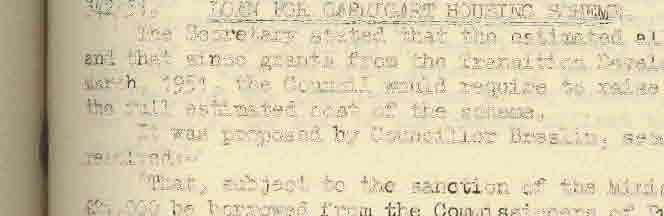 LOAN FOR CARNAGART HOUSING SCHEME.
The Secretary stated that the estimated
and that since grants from the Transition Devel
March, 1951, the Council would require to raise
the full estimated cost of the scheme.
It was proposed by Councillor Breslin, sec
resolved:-
"That, subject to the sanction of the Minis
be borrowed from the Commissioners of